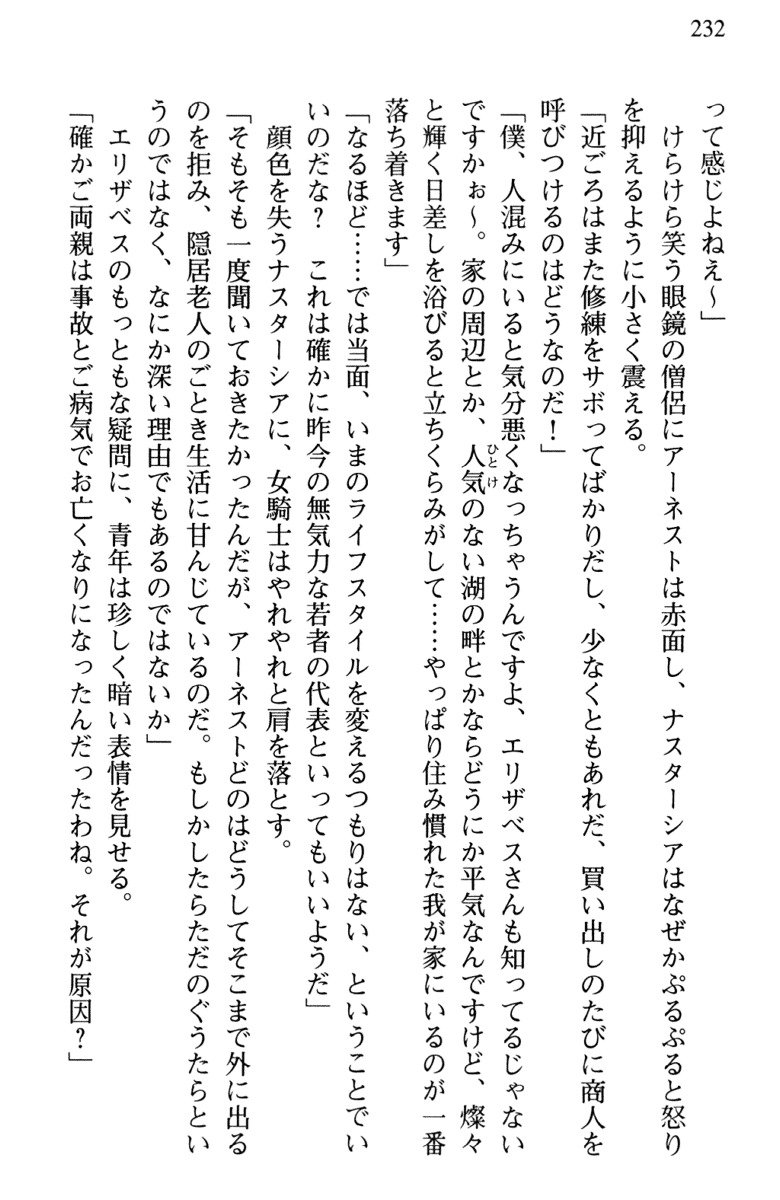 232
って感じよねえ～」
　けらけら笑う眼鏡の僧侶にアーネストは赤面し、ナスターシアはなぜかぷるぷると怒り
を抑えるように小さく震える。
「近ごろはまた修練をサボってばかりだし、少なくともあれだ、買い出しのたびに商人を
呼びつけるのはどうなのだ！」
「僕、人混みにいると気分悪くなっちゃうんですよ、エリザベスさんも知ってるじゃない
ですかぉ～。家の周辺とか、人気のない湖の畔とかならどうにか平気なんですけど、燦々
ひとけ
と輝く日差しを浴びると立ちくらみがして……やっぱり住み慣れた我が家にいるのが一番
落ち着きます」
「なるほど……では当面、いまのライフスタイルを変えるつもりはない、ということでい
いのだな？　これは確かに昨今の無気力な若者の代表といってもいいようだ」
　顔色を失うナスターシアに、女騎士はやれやれと肩を落とす。
「そもそも一度聞いておきたかったんだが、アーネストどのはどうしてそこまで外に出る
のを拒み、隠居老人のごとき生活に甘んじているのだ。もしかしたらただのぐうたらとい
うのではなく、なにか深い理由でもあるのではないか」
　エリザベスのもっともな疑問に、青年は珍しく暗い表情を見せる。
「確かご両親は事故とご病気でお亡くなりになったんだったわね。それが原因？」